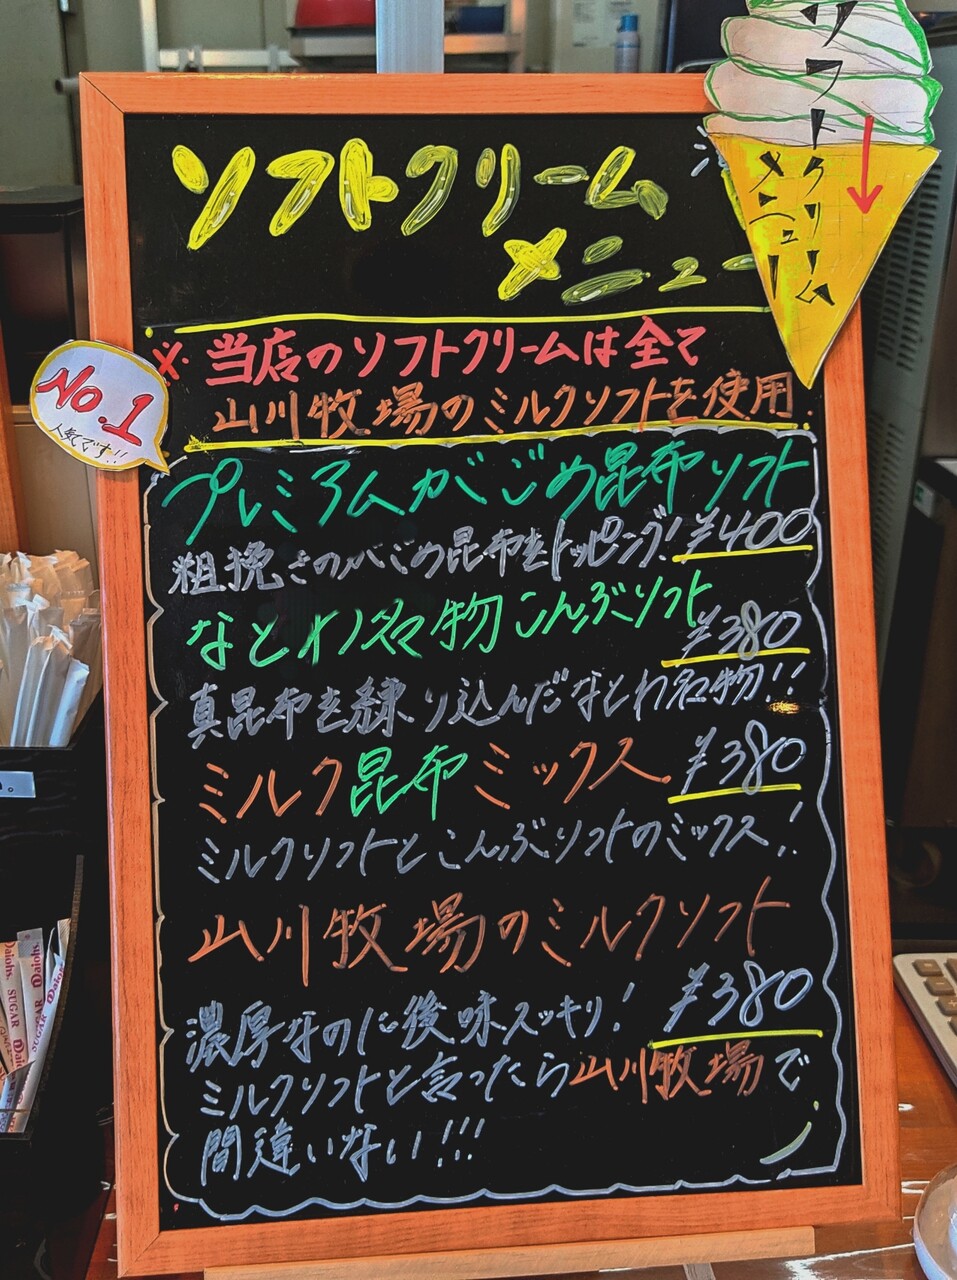 ソフトクリーム
メニュー
ソフトクリーム
メニュー
※当店のソフトクリームは全て
山川牧場のミルクソフトを使用.
No.1
人気です!!
プレミアムがごめ昆布ソフト
粗挽きのがごめ昆布をトッピング! ¥400
なとわノ名物こんぶソフト
¥380
真昆布を練り込んだなとわ名物!!
ミルク昆布ミックス ¥380
ミルクソフトとこんぶソフトのミックス!
山川牧場のミルクソフト
濃厚なのに後味スッキリ! ¥380
ミルクソフトと言ったら山川牧場で
間違いない!!!
Daiohs
SUGAR
Daiohs
SUGAR
Daiohs